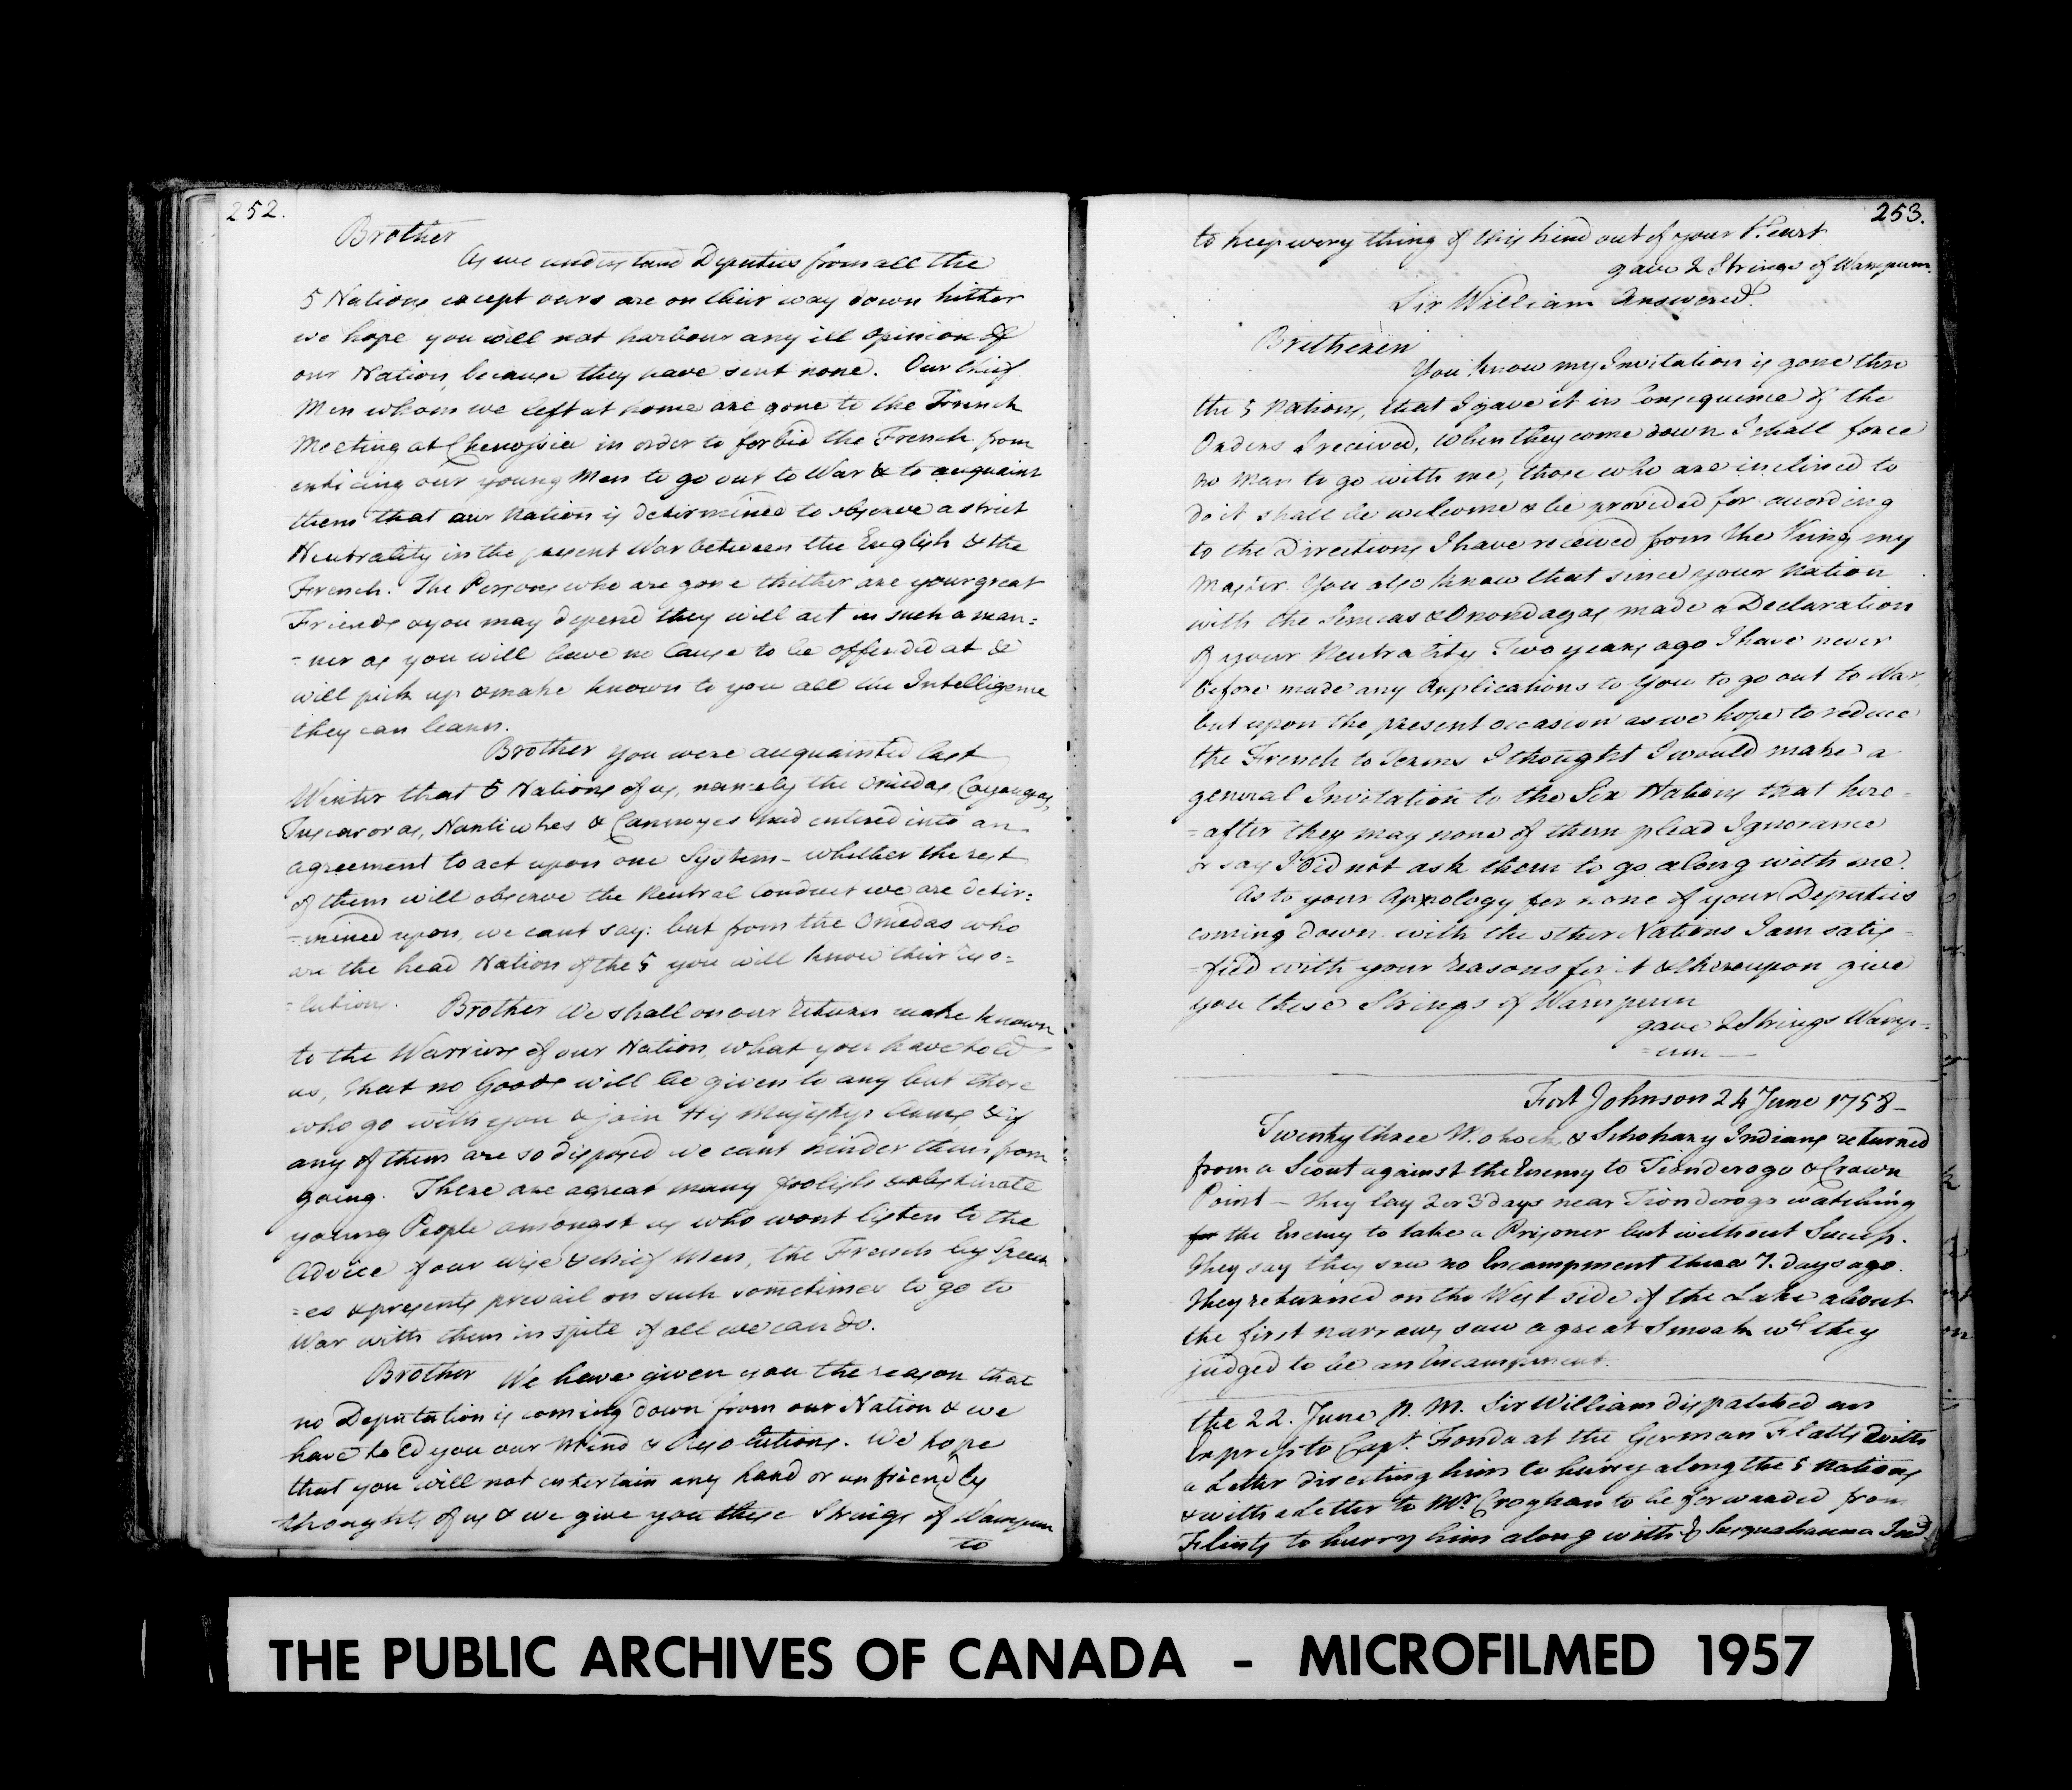 252.
Brother
As we understand Deputies from all the
5 Nations except ours are on their way down hither
we hope you will not harbour any ill Opinion of
our Nation, because they have sent none. Our Chief
Men whom we left at home are gone to the French
Meeting at Chenossia in order to forbid the French from
enticing our young Men to go out to War & to acquaint
them that our Nation is determined to observe a strict
Neutrality in the present War between the English & the
French. The Persons who are gone thither are your great
Friends & you may depend they will act in such a man:
=ner as you will have no Cause to be offended at &
will pick up & make known to you all the Intelligence
they can learn.
Brother you were acquainted last
Winter that 5 Nations of us, namely the Oniedas, Cayougas,
Tuscaroras, Nanticokes & Cannoyes had entered into an
agreement to act upon one System - whether the rest
of them will observe the Neutral Conduct we are deter:
=mined upon, we cant say: but from the Oniedas who
are the head Nation of the 5 you will know their reso=
=lutions.
Brother We shall on our return make known
to the Warriors of our Nation, what you have told
us, that no Goods will be given to any but those
who go with you & join His Majestys Arms, & if
any of them are so disposed we cant hinder them from
going. There are a great many foolish & obstinate
young People amongst us who wont listen to the
Advice of our wise & chief Men, the French by Speech
=es & presents prevail on such sometimes to go to
War with them in spite of all we can do.
Brother We have given you the reason that
no Deputation is coming down from our Nation & we
have told you our Mind & Resolutions. We hope
that you will not entertain any hard or unfriendly
thoughts of us & we give you these Strings of Wampum
to
253.
to keep every thing of this kind out of your Heart
gave 2 Strings of Wampum.
Sir William Answered.
Bretheren
You know my Invitation is gone thro
the 5 Nations, that I gave it in Consequence of the
Orders I received, When they come down I shall force
no Man to go with me, those who are inclined to
do it shall be welcome & be provided for according
to the Directions I have received from the King my
Master. You also know that since your Nation
with the Senecas & Onondagas made a Declaration
of your Neutrality Two years ago I have never
before made any Applications to You to go out to War,
but upon the present occasion as we hope to reduce
the French to Terms I thought I would make a
general Invitation to the Six Nations that here=
=after they may none of them plead Ignorance
or say I did not ask them to go along with me.
As to your Appology for none of your Deputies
coming down with the other Nations I am satis=
=fied with your reasons for it & thereupon give
you these Strings of Wampum
gave 2 Strings Wamp=
=um —
Fort Johnson 24 June 1758 -
Twenty three Mohock & Schohary Indians returned
from a Scout against the Enemy to Tionderogo & Crown
Point — they lay 2 or 3 days near Tionderogo watching
for the Enemy to take a Prisoner but without Success.
they say they saw no Encampment there 7. days ago.
they returned on the West side of the Lake about
the first narrows, saw a great Smoak wch they
judged to be an Encampment.
the 22. June P. M. Sir William dispatched an
Express to Capt. Fonda at the German Flatts with
a Letter directing him to hurry along the 5 Nations
& with a Letter to Mr. Croghan to be forwarded from
Flints to hurry him along with ye Susquahanna Inds.
THE PUBLIC ARCHIVES OF CANADA - MICROFILMED 1957